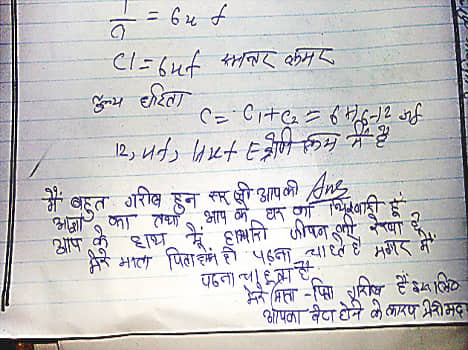 1/9 = 6uf
C1 = 6uf समान्तर क्रम
तुल्य धारिता
C = C1+C2 = 6+6=12 uf
12, uf, 4uf श्रेणी क्रम में है
Ans
मैं बहुत गरीब हुन सर जी आपकी
आज्ञा का तथा आप के घर का भिखारी हूँ
आप के हाथ में हामारी जीवन की रेखा है
मेरे माता पिता हमे ही पढ़ना चाहते है मगर में
पढना चाहता है
मेरे माता-पिता गरीब हैं इसलिए
आपका बेटा होने के कारण मेरी मदद